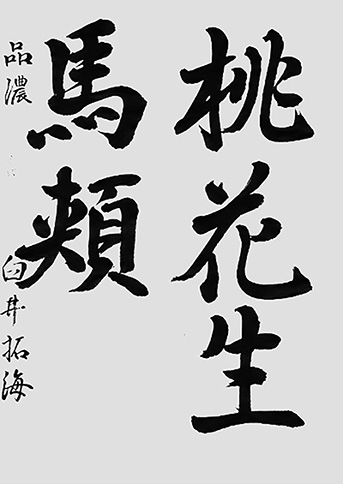 桃花生
馬頬
品濃 臼井拓海